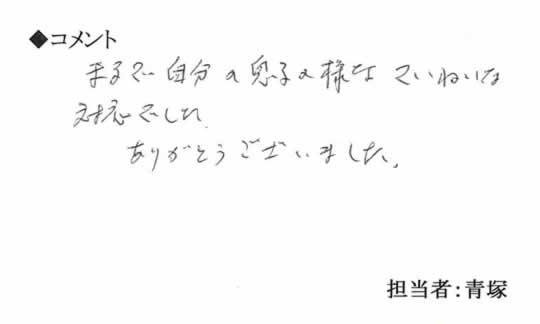 ◆コメント
まるで自分の息子の様な ていねいな
対応でした。
ありがとうございました。
担当者：青塚